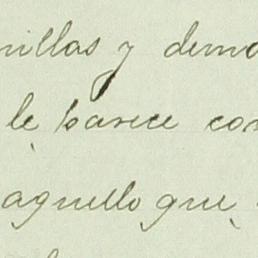 nillas y demo
le, parece con
aquello que,